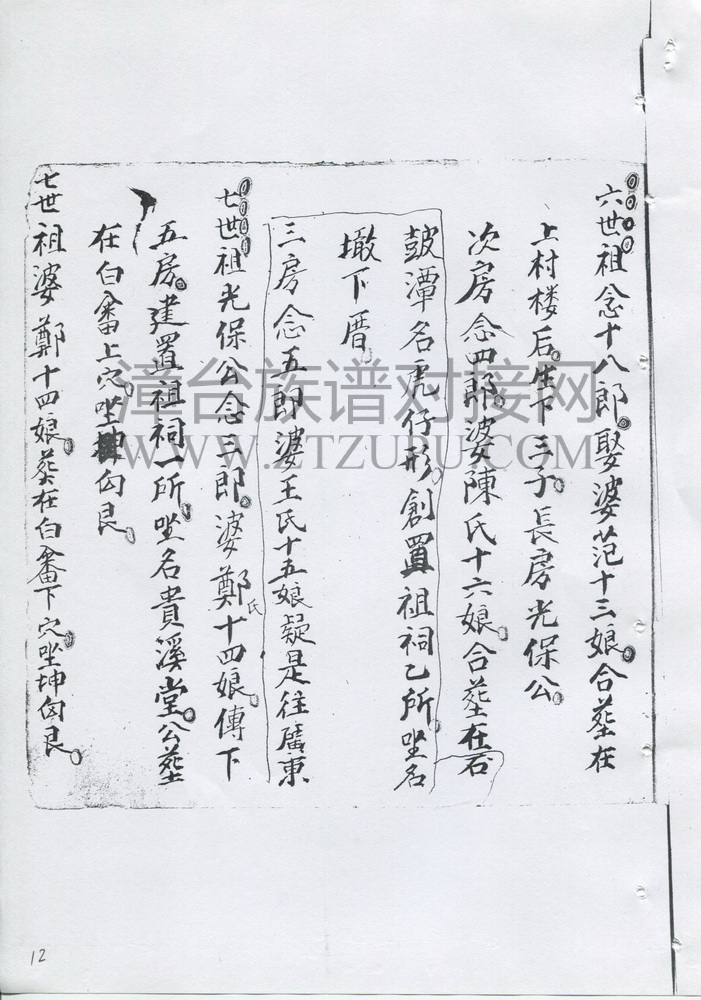 六世祖念十八郎。娶婆范十三娘。合塟在
上村楼后。生下三子。長房光保公。
次房念四郎。婆陳氏十六娘。合塟在石
皷潭名虎仔形。創置祖祠乙所。坐名
墩下厝。
三房念五郎婆王氏十五娘疑是往廣東
七世祖光保公念三郎。婆鄭氏十四娘。傳下
五房。建置祖祠一所。坐名貴溪堂。公塟
在白畬上穴。坐坤向艮。
七世祖婆鄭十四娘。葵在白畬下穴。坐坤向艮。
漳台族谱对接网
WWW.ZTZUPU.COM
12